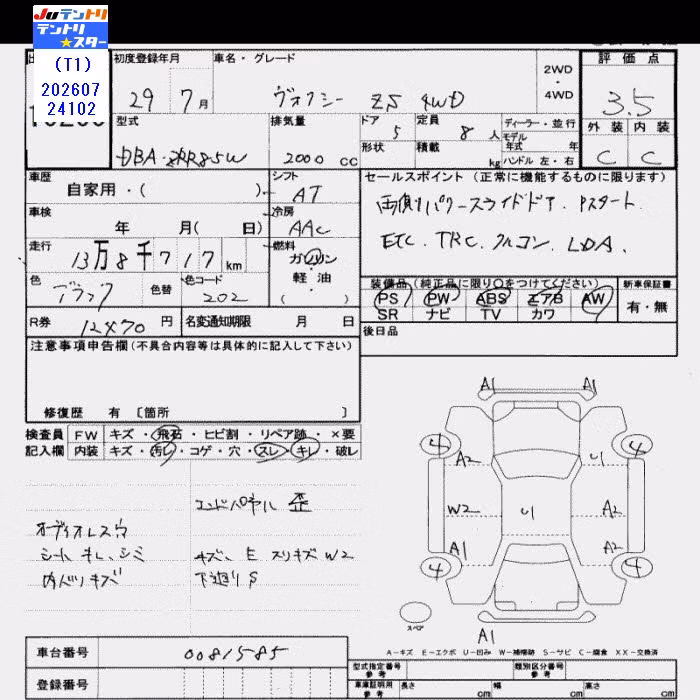 JUテントリ
テントリ
★スター
(T1)
202607
24102
初度登録年月
29年 7月
車名・グレード
ヴォクシー ZS 4WD
2WD
・
4WD
評価点
3.5
外装 内装
C C
型式
DBA-ZRR85W
排気量
2000 cc
ドア
5
形状
定員
8人
積載
kg
ディーラー・並行
モデル
年式 年
ハンドル 左・右
車歴
自家用・( )
シフト
AT
セールスポイント (正常に機能するものに限ります)
両側パワースライドドア. Pスタート.
ETC. TRC. クルコン. LDA.
車検
年 月( 日)
冷房
AAC
走行
13万8千717km
燃料
ガソリン
・
軽油
( )
色
ブラック
色替
色コード
202
装備品 (純正品に限り○をつけてください)
PS PW ABS エアB AW
SR ナビ TV カワ
新車保証書
有・無
R券
12470円
名変通知期限 月 日
後日品
注意事項申告欄 (不具合内容等は具体的に記入して下さい)
修復歴 有 〔箇所 〕
検査員
記入欄
FW キズ・飛石・ヒビ割・リペア跡・×要
内装 キズ・汚レ・コゲ・穴・スレ・キレ・破レ
エンドパネル 歪
オーディオレス穴
シート キレ、シミ
内ハリキズ
キズ、E スリキズ W2
下廻り S
A1 A1
4 4
A2 U
W2 U A2
A1 A2
4 4
スペア
A1
A-キズ E-エクボ U-凹み W-補修跡 S-サビ C-腐食 XX-交換済
車台番号
0081585
登録番号
型式指定番号
参考
類別区分番号
参考
車庫証明用
参考
長さ cm
幅 cm
高さ cm